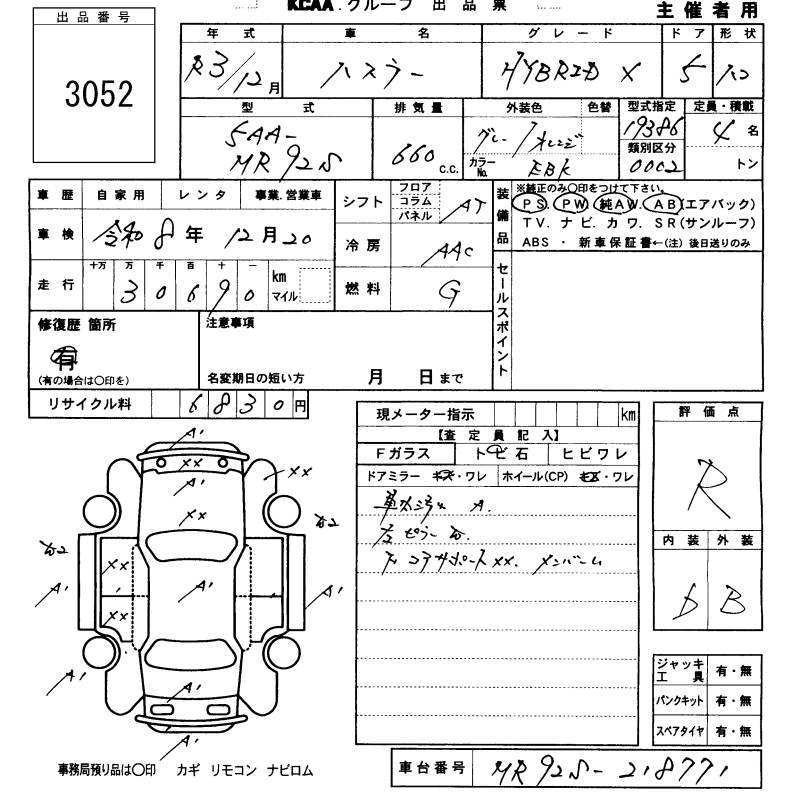 KCAA.グループ 出品票
主催者用
出品番号
3052
年式 車名 グレード ドア 形状
R3/12月 ハスラー HYBRID X 5 ハコ
型式 排気量 外装色 色替 型式指定 定員・積載
5AA-
MR92S 660 c.c. グレー/オレンジ 19386 4名
カラーNo. EBK 類別区分 0002 トン
車歴 自家用 レンタ 事業.営業車
車検 令和8年 12月20
走行 十万 万 千 百 十 一 km マイル
30690
シフト フロア コラム パネル AT
冷房 AAC
燃料 G
装備品
※純正のみ〇印をつけて下さい。
PS. PW. 純AW. AB(エアバック)
TV. ナビ. カワ. SR(サンルーフ)
ABS ・ 新車保証書←(注)後日送りのみ
セールスポイント
修復歴 箇所
有
(有の場合は〇印を)
注意事項
名変期日の短い方 月 日まで
リサイクル料 6830円
現メーター指示 km
【査定員記入】
Fガラス トビ石 ヒビワレ
ドアミラー キズ・ワレ ホイール(CP) キズ・ワレ
A.
左ピラー
コアサポートxx. メンバー
評価点
R
内装 外装
D B
ジャッキ工具 有・無
パンクキット 有・無
スペアタイヤ 有・無
A'
xx
xx
A'
xx
xx
A'
A'
xx
A'
A'
A'
A'
A'
事務局預り品は〇印 カギ リモコン ナビロム
車台番号 MR92S-218771